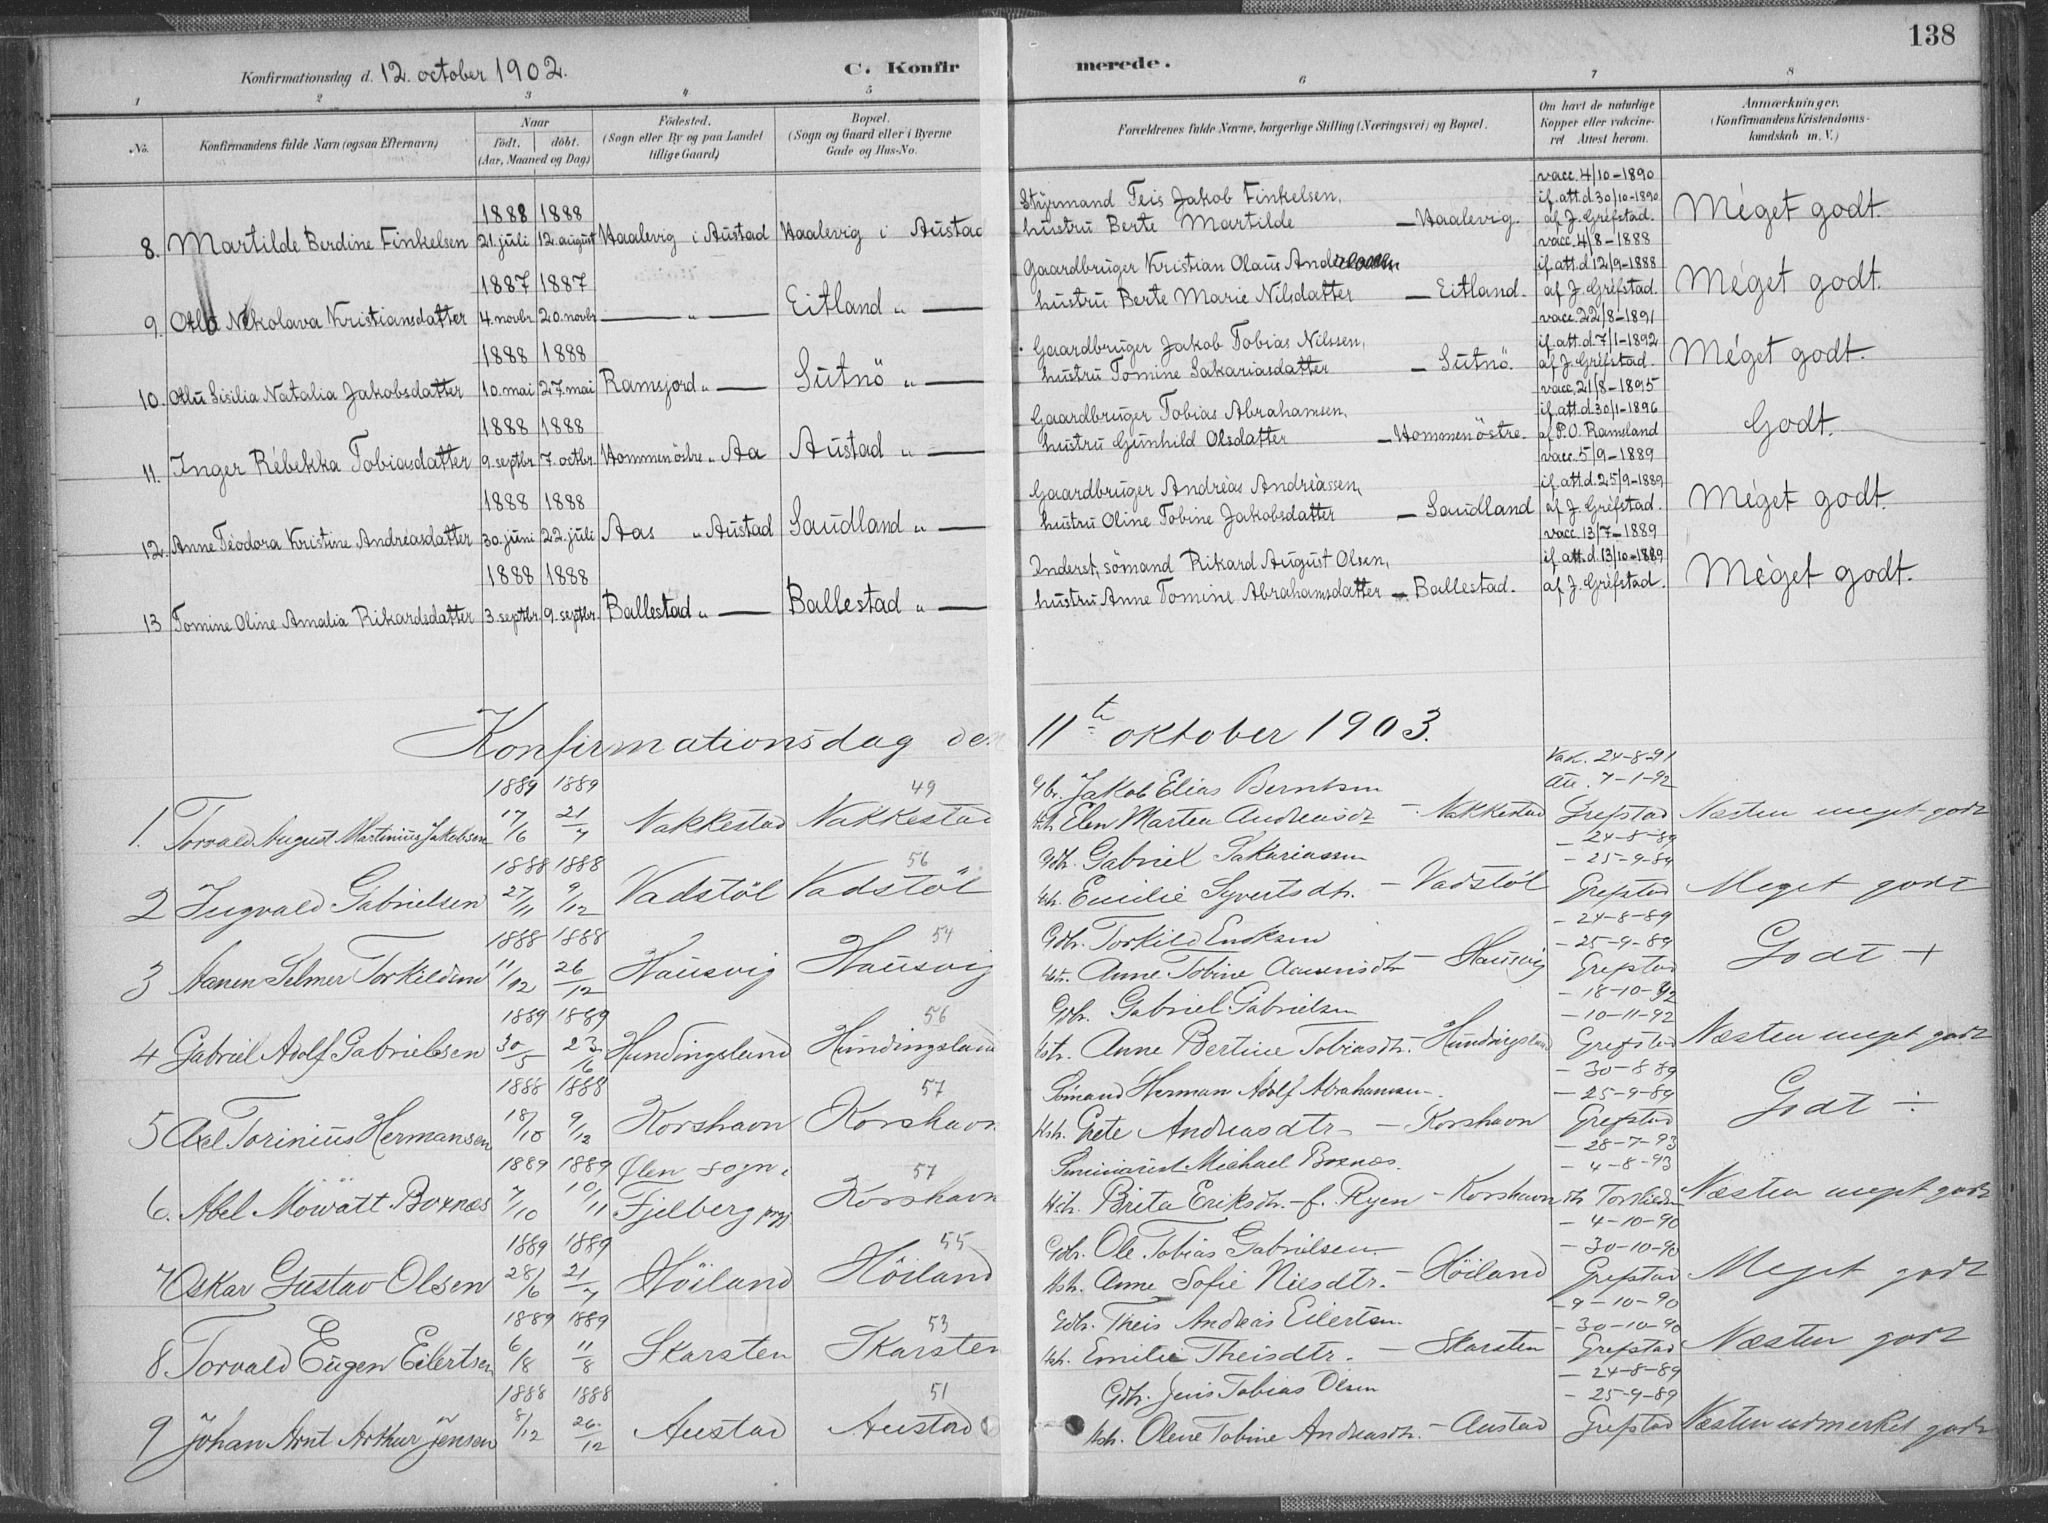 138
Konfirmationsdag d. 12. october 1902.
C. Konfirmerede.
1 2 3 4 5 6 7 8
No.
Konfirmandens fulde Navn (ogsaa Efternavn)
Naar
født. døbt.
(Aar, Maaned og Dag)
Fødested.
(Sogn eller By og paa Landet
tillige Gaard)
Bopæl.
(Sogn og Gaard eller i Byerne
Gade og Hus-No.
Forældrenes fulde Navne, borgerlige Stilling (Næringsvei) og Bopæl.
Om havt de naturlige
Kopper eller vakcine-
ret Attest herom.
Anmærkninger.
(Konfirmandens Kristendoms-
kundskab m. V.)
1888 1888 Styrmand Teis Jakob Finkelsen, vacc. 4/10-1890 if. att. d. 30/10-1890
8. Martilde Berdine Finkelsen 21. juli 12. august Haalevig i Austad Haalevig i Austad hustru Berte Martilde — Haalevig. af J. Grefstad. Méget godt.
1887 1887 Gaardbruger Kristian Olaus vacc. 4/8-1888 if. att. d. 12/9-1888
9. Nikolava Kristiansdatter 4. novbr 20. novbr — „ — Eitland „ — hustru Berte Marie Nilsdatter — Eitland. af J. Grefstad. Méget godt.
1888 1888 Gaardbruger Jakob Tobias Nilssen, vacc. 22/8-1891 if. att. d. 7/1-1892
10. Alu Sisilia Natalia Jakobsdatter 10. mai 27. mai Ramsjord „ — Sutnö „ — hustru Tomine Sakariasdatter — Sutnö. af J. Grefstad. Méget godt.
1888 1888 Gaardbruger Tobias Abrahamsen, vacc. 21/8-1895 if. att. d. 30/1-1896
11. Inger Rébekka Tobiasdatter 9. septbr 7. octbr. Hommen östre „ Aa Austad „ — hustru Gunhild Olsdatter — Hommen östre. af P.O. Ramsland Godt.
1888 1888 Gaardbruger Andréas Andréassen, vacc. 5/9-1889 if. att. d. 25/9-1889
12. Anne Téodora Kristine Andréasdatter 30. juni 22. juli Aas „ Austad Saudland „ — hustru Oline Tobine Jakobsdatter — Saudland af J. Grefstad. Méget godt.
1888 1888 Inderst, sömand Rikard August Olsen, vacc. 13/7-1889 if. att. d. 13/10-1889
13 Tomine Oline Amalia Rikardsdatter 3. septbr. 9. septbr. Ballestad „ — Ballestad „ — hustru Anne Tomine Abrahamsdatter — Ballestad. af J. Grefstad. Méget godt.
Konfirmationsdag den 11te oktober 1903.
1889 1889 49 Gbr. Jakob Elias Berntsen Vak. 24-8-91 Att. 7-1-92
1. Torvald August Martinius Jakobsen 17/6 21/7 Nakkestad Nakkestad Hst. Elen Martea Andreasdtr — Nakkestad Grefstad Næsten meget godt
1888 1888 56 Gdbr. Gabriel Sakariassen — 24-8-89 — 25-9-89
2 Ingvald Gabrielsen 27/11 9/12 Vadstöl Vadstöl Hstr. Emilie Syvertsdtr. — Vadstöl Grefstad Meget godt
1888 1888 54 Gdbr. Torkild Enoksen — 24-8-89 — 25-9-89
3 Aanen Selmer Torkildsen 11/12 26/12 Hausvig Hausvig Hstr. Anne Tobine Aanensdtr — Hausvig Grefstad Godt +
1889 1889 56 Gdbr. Gabriel Gabrielsen — 18-10-92 — 10-11-92
4 Gabriel Adolf Gabrielsen 30/5 23/6 Hundingsland Hundingsland Hstr. Anne Bertine Tobiasdtr. — Hundingsland Grefstad Næsten meget godt
1888 1888 57 Sömand Herman Adolf Abrahamsen — 30-8-89 — 25-9-89
5 Axel Torinius Hermansen 18/10 9/12 Korshavn Korshavn Hstr. Grete Andreasdtr — Korshavn Grefstad Godt ÷
1889 1889 Ølen sogn. 57 Seminarist Michael Boxnæs. — 28-7-93 — 4-8-93
6. Abel Mówatt Boxnæs 7/10 10/11 Fjelberg prgj Korshavn Hstr. Brita Eriksdtr. f. Ryen — Korshavn Næsten meget godt
1889 1889 55 Gdbr. Ole Tobias Gabrielsen — 4-10-90 — 30-10-90
7 Oskar Gustav Olsen 28/6 21/7 Höiland Höiland Hstr. Anne Sofie Nilsdtr. — Höiland Grefstad Meget godt
1889 1889 53 Gdbr. Theis Andreas Eilertsen — 9-10-90 — 30-10-90
8. Torvald Eugen Eilertsen 6/8 11/8 Skarsten Skarsten Hstr. Emilie Theisdtr. — Skarsten Grefstad Næsten godt
1888 1888 51 Gdbr. Jens Tobias Olsen — 24-8-89 — 25-9-89
9 Johan Arnt Arthur Jensen 8/12 26/12 Austad Austad Hstr. Olene Tobine Andreasdtr. — Austad Grefstad Næsten udmerket godt